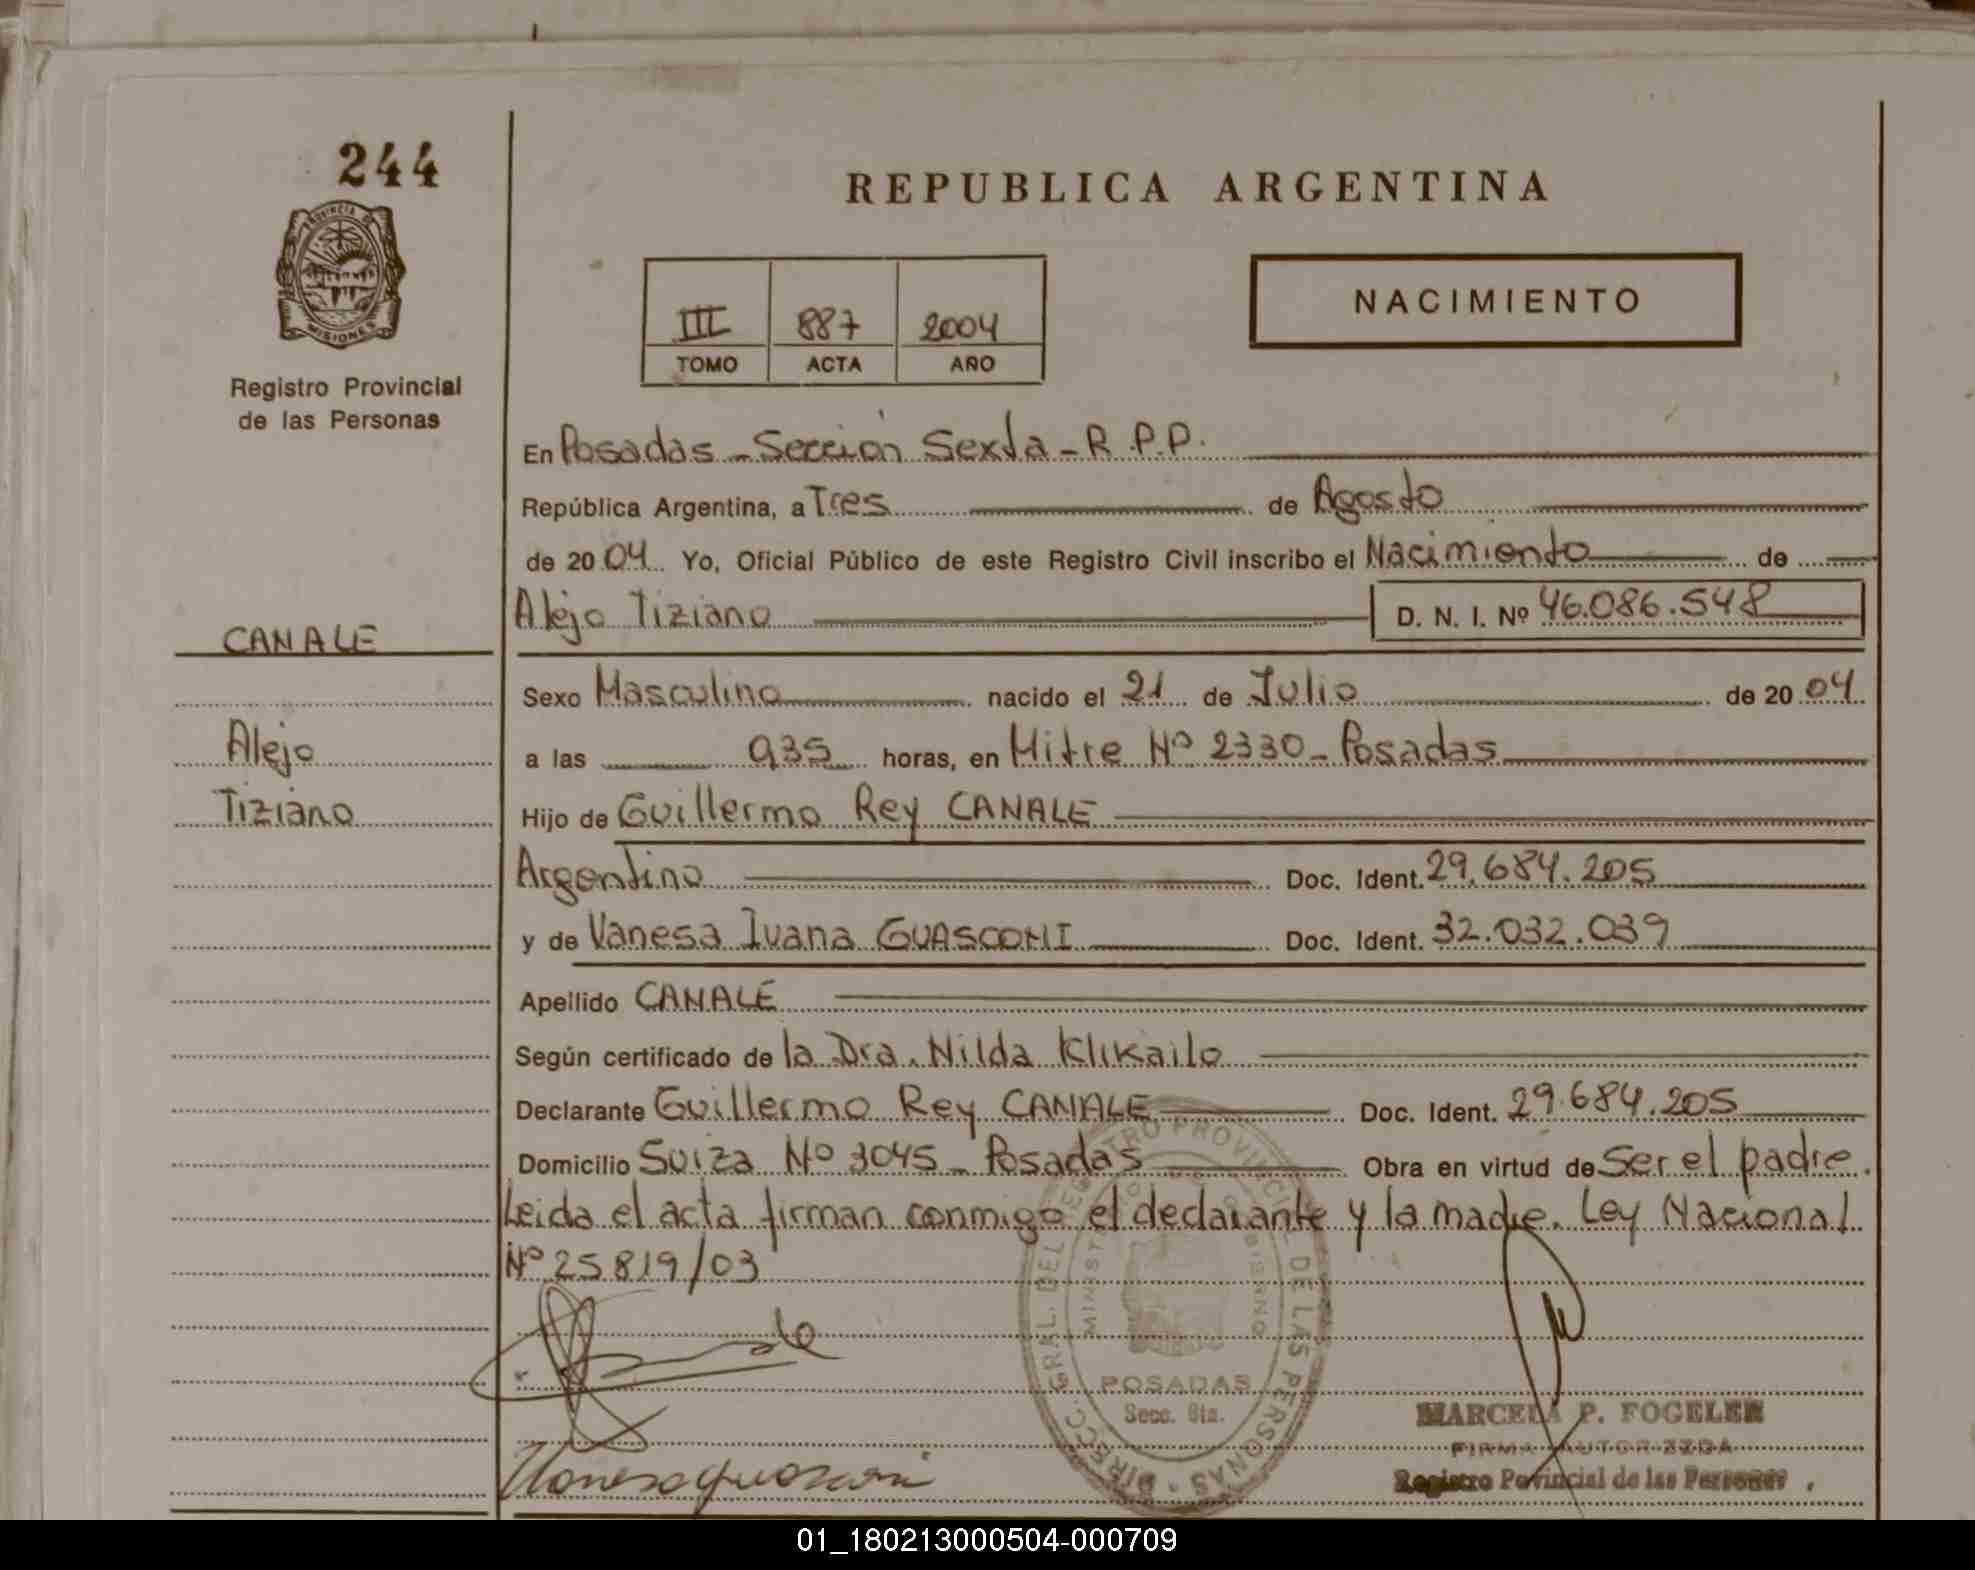 244
PROVINCIA DE
MISIONES
Registro Provincial
de las Personas
CANALE
Alejo
Tiziano
REPUBLICA ARGENTINA
III 887 2004
TOMO ACTA AÑO
NACIMIENTO
En Posadas - Sección Sexta - R.P.P.
República Argentina, a Tres de Agosto
de 2004 Yo, Oficial Público de este Registro Civil inscribo el Nacimiento de
Alejo Tiziano D. N. I. Nº 46.086.548
Sexo Masculino nacido el 21 de Julio de 2004
a las 935 horas, en Mitre Nº 2330 - Posadas
Hijo de Guillermo Rey CANALE
Argentino Doc. Ident. 29.684.205
y de Vanesa Ivana GUASCONI Doc. Ident. 32.032.039
Apellido CANALE
Según certificado de la Dra. Nilda Klikailo
Declarante Guillermo Rey CANALE Doc. Ident. 29.684.205
Domicilio Suiza Nº 3045 - Posadas Obra en virtud de Ser el padre.
Leida el acta firman conmigo el declarante y la madre. Ley Nacional
Nº 25819/03
DIRECC. GRAL. DEL REGISTRO PROVINCIAL DE LAS PERSONAS
MINISTERIO DE GOBIERNO
POSADAS
Secc. 6ta.
MARCELA P. FOGELER
FIRMA AUTORIZADA
Registro Provincial de las Personas
01_180213000504-000709